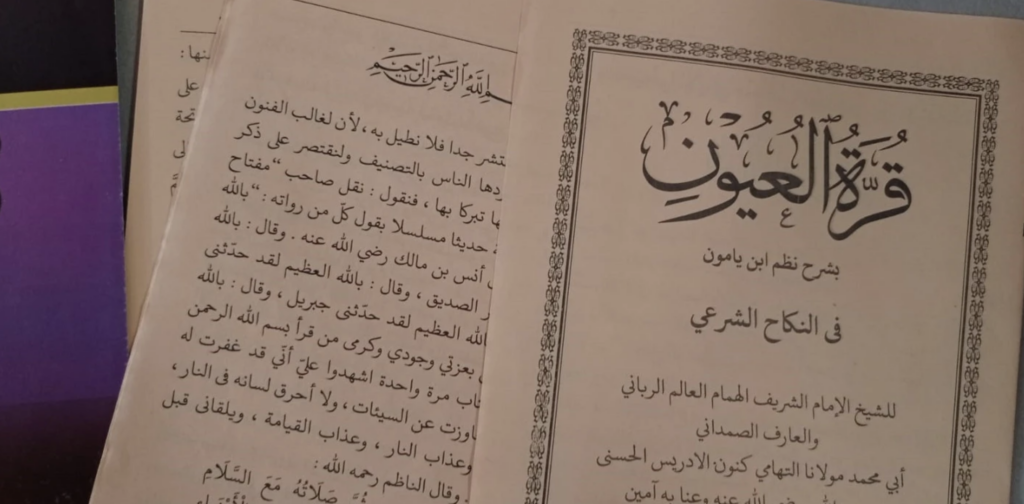 قُرَّةُ الْعُيُونِ
بشرح نظم ابن يامون
فى النكاح الشرعي
للشيخ الإمام الشريف الهمام العالم الرباني
والعارف الصمداني
أبي محمد مولانا التهامي كنون الادريس الحسنى
رضى الله عنه وعنا به آمين
الله الرحمن الرحيم
جدا فلا نطيل به، لأن لغالب الفنون
الناس بالتصنيف ولنقتصر على ذكر
تبركا بها، فنقول: نقل صاحب "مفتاح
حديثا مسلسلا بقول كلّ من رواته: "بالله
أنس بن مالك رضي الله عنه. وقال: بالله
الصديق، وقال: بالله العظيم لقد حدّثنى
العظيم لقد حدّثنى جبريل، وقال: بالله
بعزتي وجودي وكرمى من قرأ بسم الله الرحمن
مرة واحدة اشهدوا عليّ أنّي قد غفرت له
عن السيئات، ولا أحرق لسانه فى النار،
وعذاب النار، وعذاب القيامة، ويلقانى قبل
وقال الناظم رحمه الله:
صَلَاتُهُ مَعَ السَّلَامِ
على